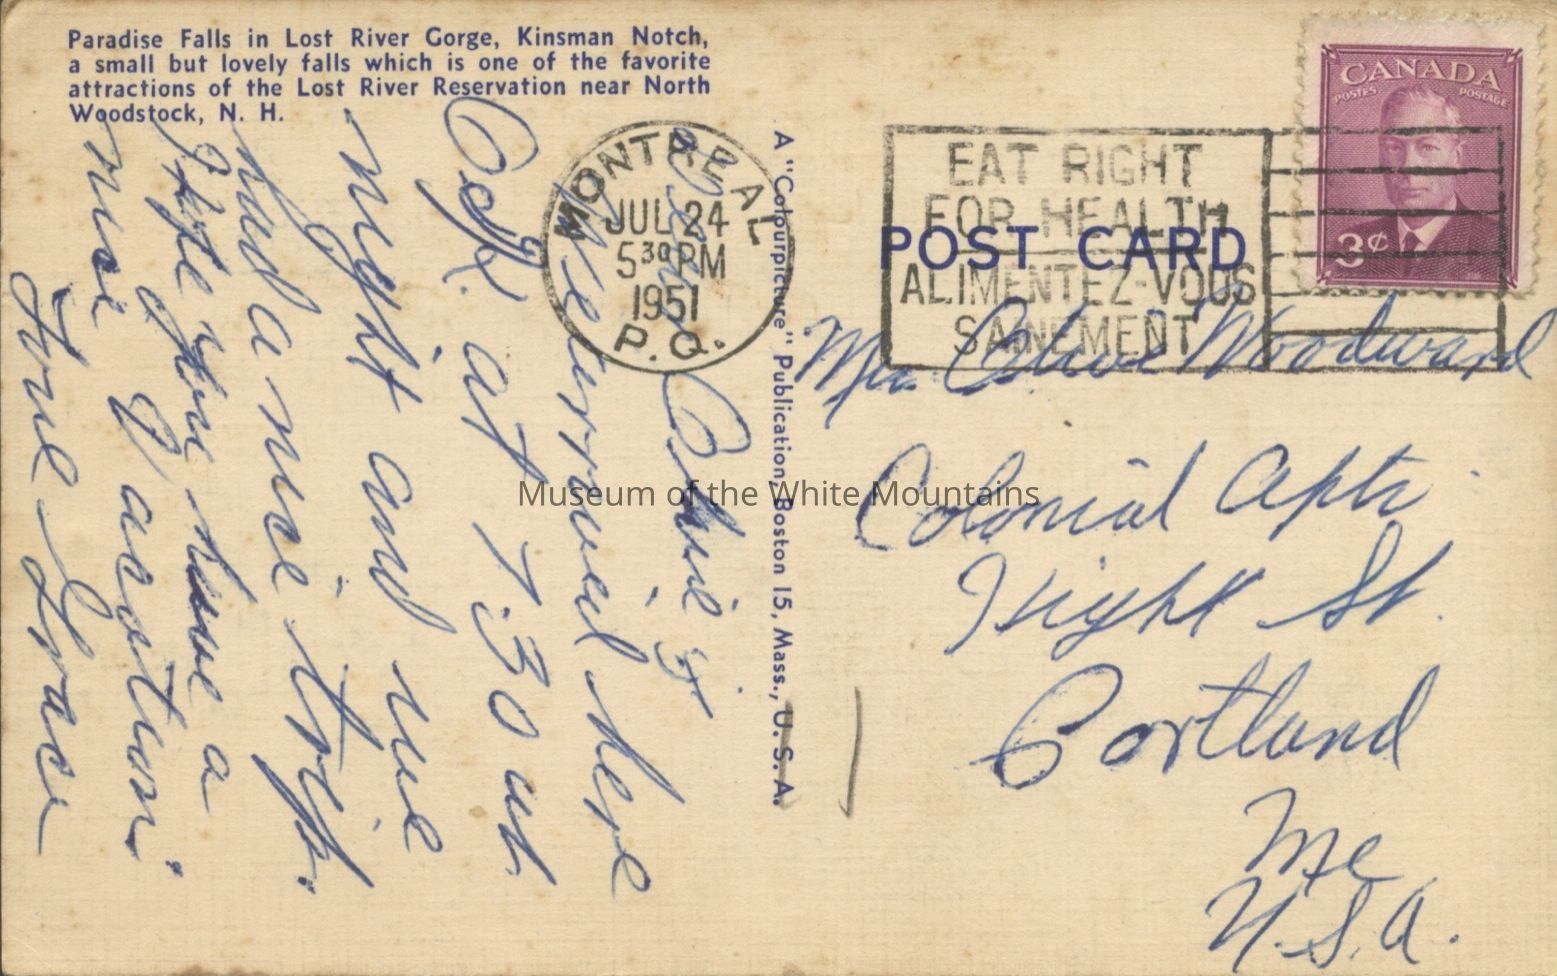 Paradise Falls in Lost River Gorge, Kinsman Notch,
a small but lovely falls which is one of the favorite
attractions of the Lost River Reservation near North
Woodstock, N. H.
MONTREAL
JUL 24
5 30 PM
1951
P.Q.
EAT RIGHT
FOR HEALTH
ALIMENTEZ-VOUS
SAINEMENT
CANADA
POSTES POSTAGE
3¢
POST CARD
A "Colourpicture" Publication, Boston 15, Mass., U. S. A.
Dear
We arrived here
O.K. at 7:30 at
night and we
had a nice trip.
Hope you have a
nice vacation.
Love Grace
Woodward
Colonial Apts
St.
Portland
Me
U.S.A.
Museum of the White Mountains